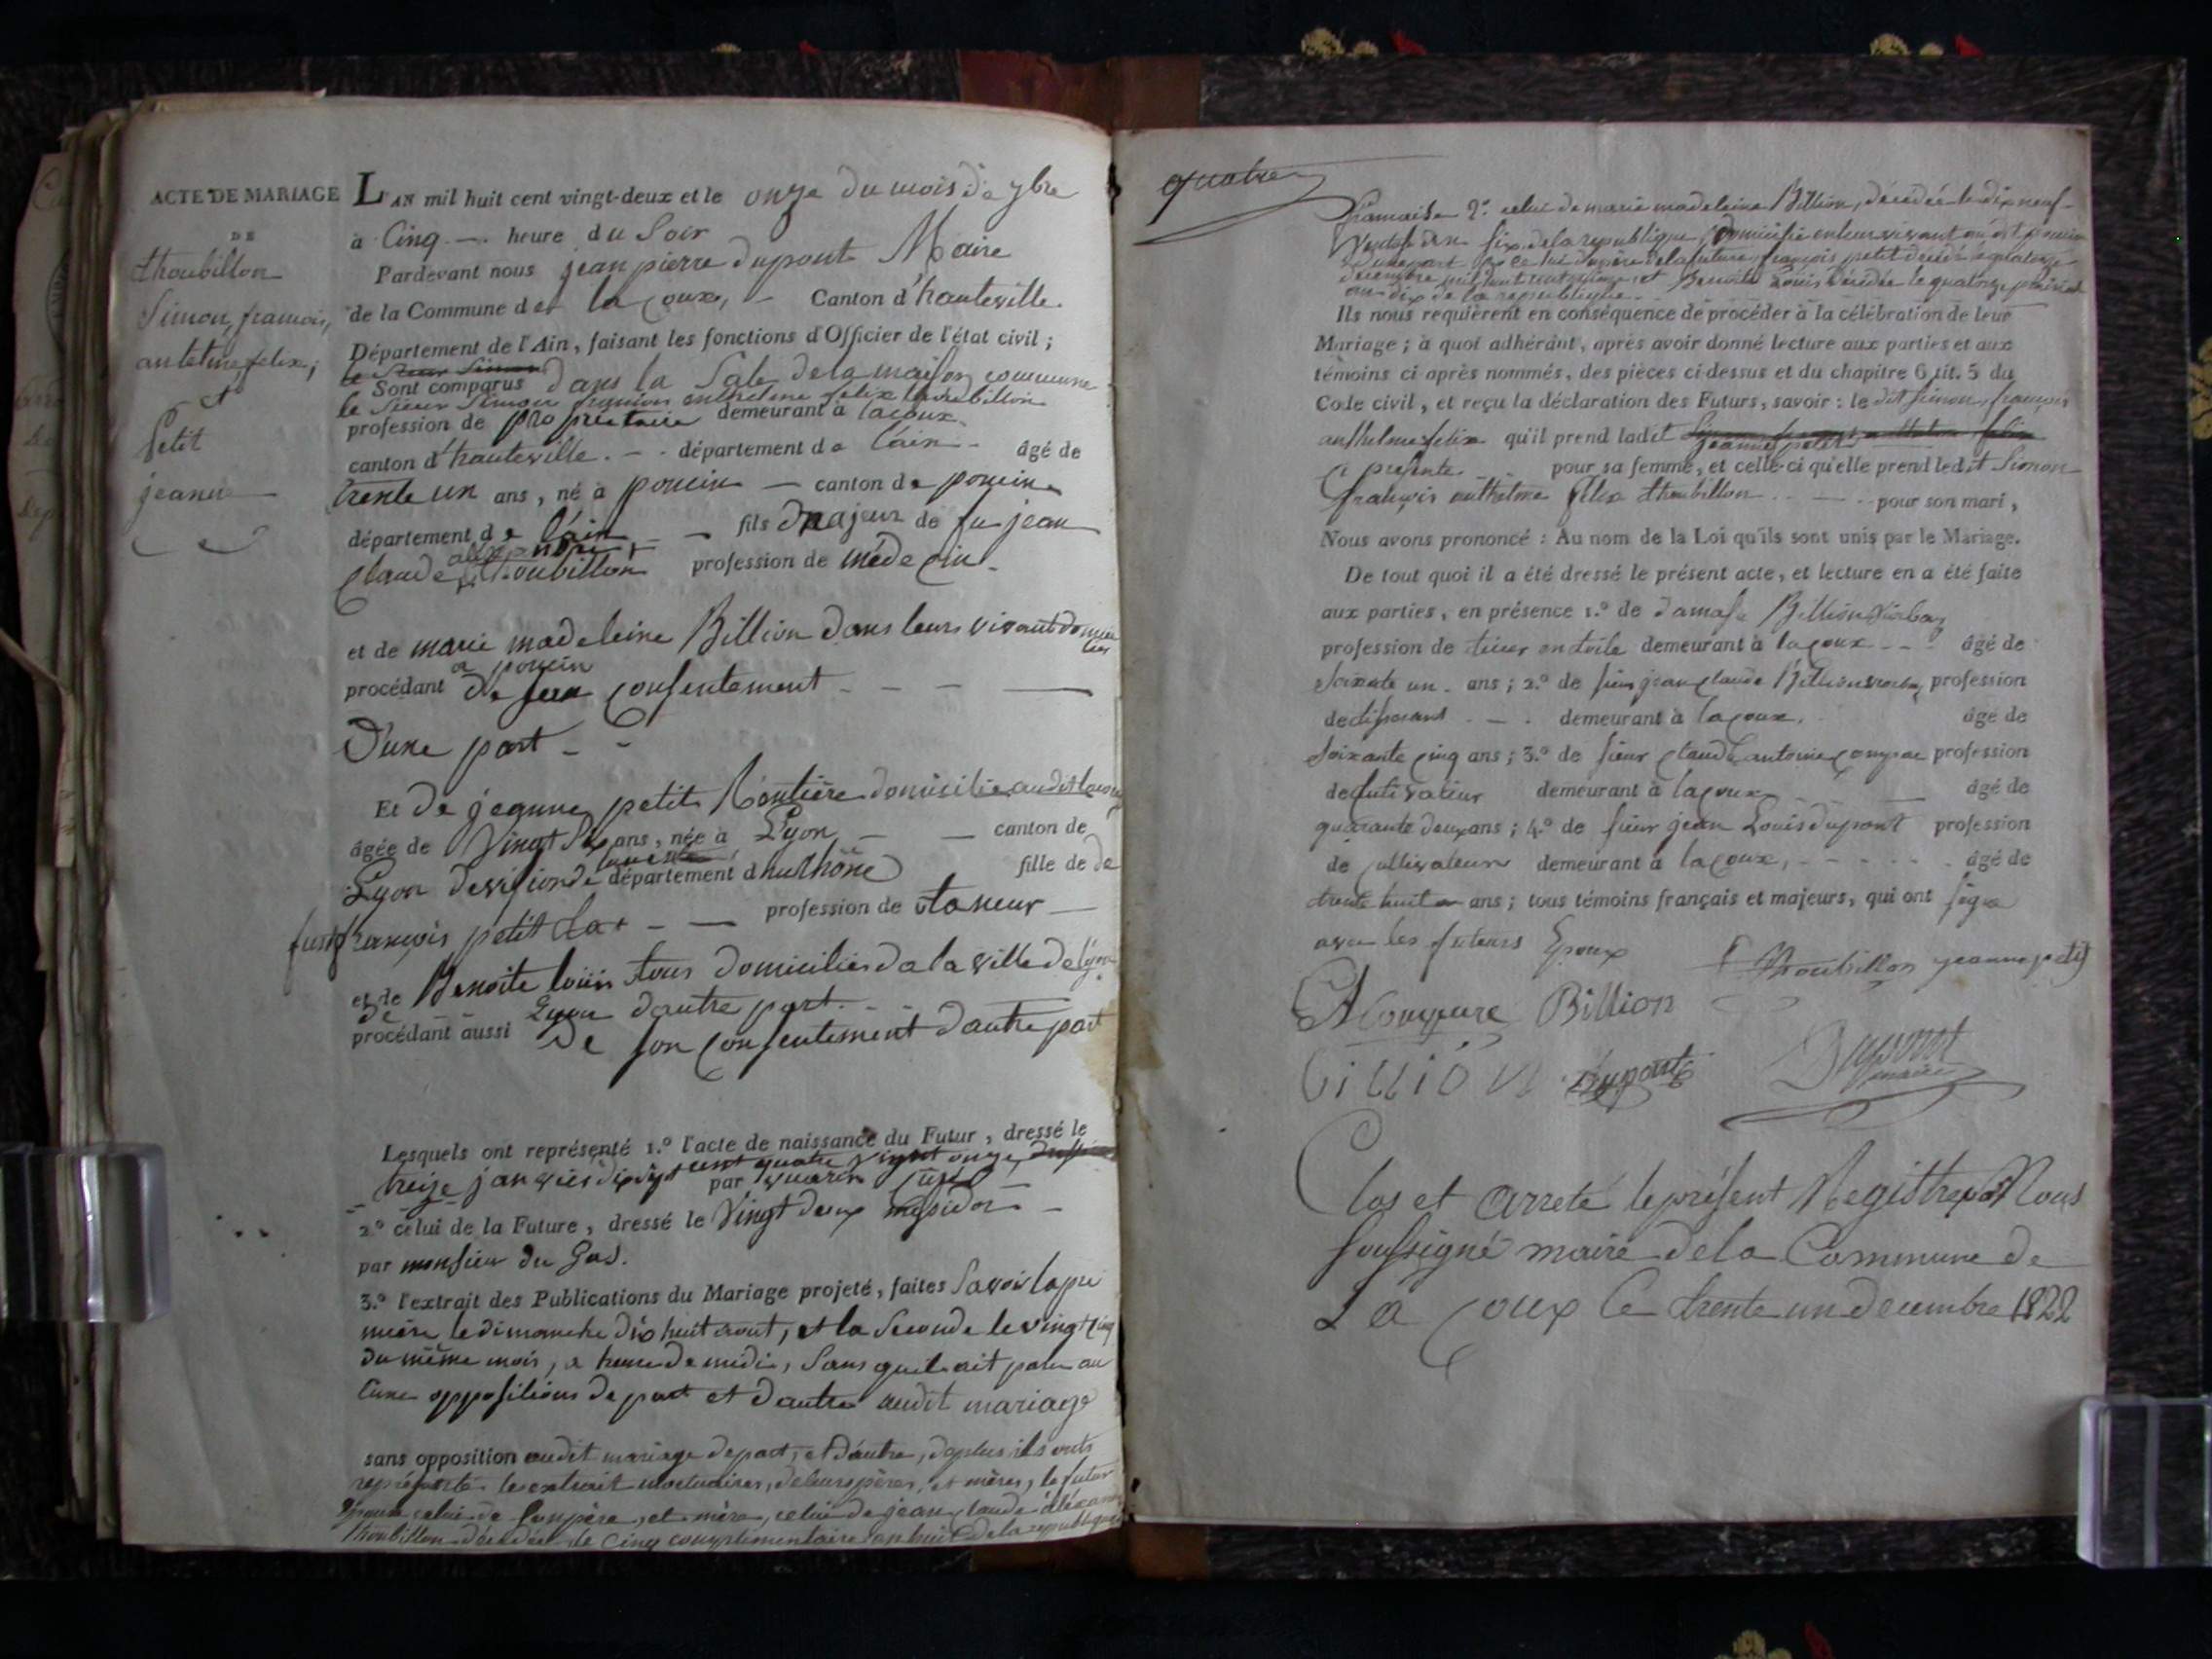 ACTE DE MARIAGE
DE
thoubillon
Simon, francois,
anthelme felix;
et
Petit
jeanne
L'AN mil huit cent vingt-deux et le onze du mois de 7bre
à Cinq heure du Soir
Pardevant nous jean pierre dupont Maire
de la Commune de la coux, Canton d'hauteville.
Département de l'Ain, faisant les fonctions d'Officier de l'état civil;
le Sieur Simon
Sont comparus dans la Sale de la maison commune
le Sieur Simon françois anthelme felix thoubillon
profession de propriétaire demeurant à lacoux
canton d'hauteville. département de l'ain âgé de
trente un ans, né à poncin canton de poncin
département de l'ain fils majeur de fu jean
alexandre
Claude thoubillon profession de médecin
et de marie madeleine Billion dans leurs vivant domici
liés
a poncin
procédant de son consentement
D'une part
Et de jeanne petit Rentière domicilié audit lacoux
âgée de Vingt six ans, née à Lyon canton de
Lyon division de département du rhône fille de de
fust françois petit profession de taneur
et de Benoite louis tous domiciliés de la ville de lyon
de Lyon d'autre part.
procédant aussi de son consentement d'autre part
Lesquels ont représenté 1.º l'acte de naissance du Futur, dressé le
treize janvier dix sept cent quatre vingt onze
par curé
2.º célui de la Future, dressé le Vingt deux messidor
par monsieur du Gas.
3.º l'extrait des Publications du Mariage projeté, faites Savoir la pre
mière le dimanche dix huit aout, et la Seconde le vingt cinq
du même mois, a heure de midi, Sans quil ait paru au
cune oppositions de part et d'autre audit mariage
sans opposition audit mariage de part, et d'autre, de plus ils onts
représenté les extrait mortuaires, de leurs pères, et mères, le futur
Epoux celui de son père, et mère, celui de jean claude aléxandre
thoubillon décédée le Cinq complémentaire lan huit de la république
quatre
francaise 2.º celui de marie madeleine Billion, décédée le dix neuf
Ventose an six de la république, domicilié en leur vivant au dit poncin
D'une part celui du père de la future, françois petit décédé le quatorze
décembre mil huit cent et Benoite Louis décédée le quatorze prairial
an dix de la république
Ils nous requièrent en conséquence de procéder à la célébration de leur
Mariage; à quoi adhérant, après avoir donné lecture aux parties et aux
témoins ci après nommés, des pièces ci-dessus et du chapitre 6 tit. 5 du
Code civil, et reçu la déclaration des Futurs, savoir: le dit Simon, françois
anthelme felix qu'il prend ladit jeanne petit
ci présente pour sa femme, et celle-ci qu'elle prend ledit Simon
françois anthelme felix thoubillon pour son mari,
Nous avons prononcé: Au nom de la Loi qu'ils sont unis par le Mariage.
De tout quoi il a été dressé le présent acte, et lecture en a été faite
aux parties, en présence 1.º de damase Billion
profession de tisier en toile demeurant à lacoux âgé de
Soixante un ans; 2.º de sieur jean claude Billion profession
de tisserand demeurant à lacoux. âgé de
Soixante cinq ans; 3.º de sieur claude antoine profession
de cultivateur demeurant à lacoux âgé de
quarante deux ans; 4.º de sieur jean Louis dupont profession
de cultivateur demeurant à lacoux, âgé de
trente huit ans; tous témoins français et majeurs, qui ont signé
avec les futurs Epoux F Thoubillon jeanne petit
Billion
Billion dupont Dupont
maire
Clos et arreté le présent Registre par Nous
soussigné maire de la Commune de
La Coux le trente un decembre 1822